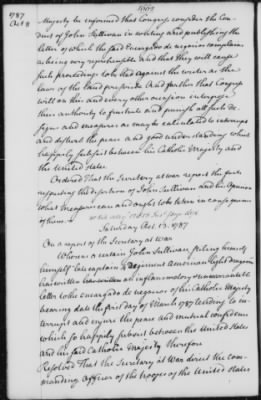 1787
Octr 8
Majesty be informed that Congress consider the Con
duct of John Sullivan in writing and publishing the
letter of which the said Encargado de negocios complains
as being very reprehensible and that they will cause
such proceedings to be had against the writer as the
laws of the land prescribe. And farther that Congress
will on this and every other occasion interpose
their authority to frustrate and punish all such de
signs and measures as may be calculated to interrupt
and disturb the peace and good understanding which
happily subsist between his Catholic Majesty and
the United States
Ordered That the Secretary at war report the facts
respecting the desertion of John Sullivan and his Opinion
what measures can and ought to be taken in consequence
thereof
Saturday Oct. 13. 1787
On a report of the Secretary at war
Whereas a certain John Sullivan stiling himself
late captain 4 Regiment American light dragoons
has written an inflammatory
letter to the encargado de negocios of his Catholic Majesty
bearing date the first day of March 1787 tending to in
terrupt and injure the peace and mutual confidence
which so happily subsist between the United States
and his said Catholic Majesty therefore
Resolved That the Secretary at War direct the com
manding Officer of the troops of the United States